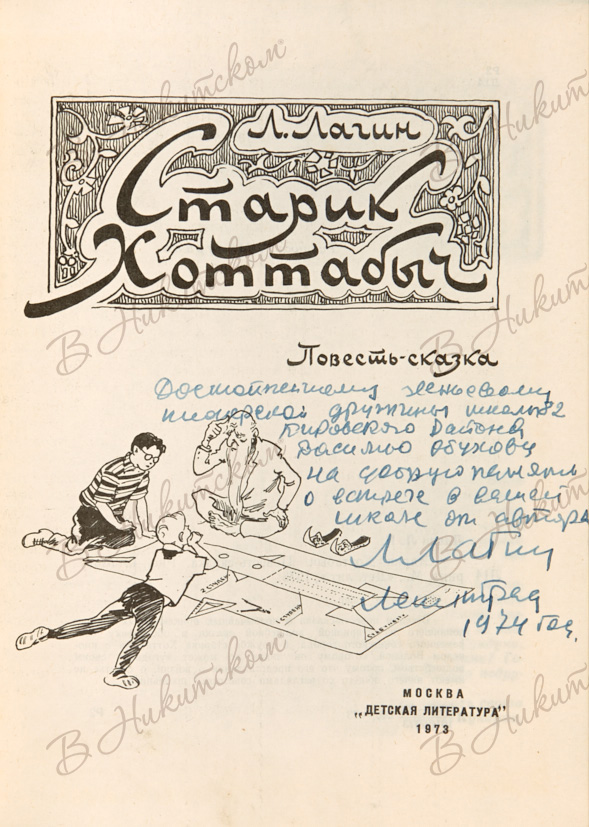 Л. Лагин
Старик
Хоттабыч
Повесть-сказка
пионерской дружины школы 82
Кировского района
Василью Обухову
на добрую память
о встрече в вашей
школе от автора
Л Лагин
Ленинград
1974 год.
2 СТУПЕНЬ
1 СТУПЕНЬ
МОСКВА
„ДЕТСКАЯ ЛИТЕРАТУРА"
1973
В Никитском